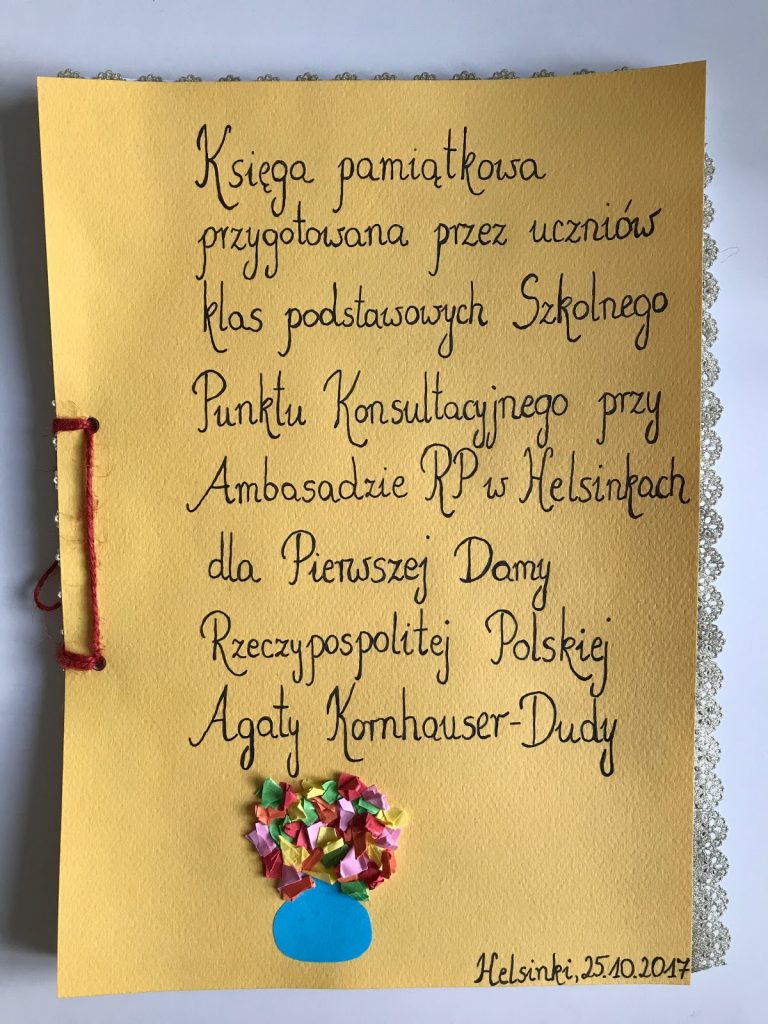 Księga pamiątkowa
przygotowana przez uczniów
klas podstawowych Szkolnego
Punktu Konsultacyjnego przy
Ambasadzie RP w Helsinkach
dla Pierwszej Damy
Rzeczypospolitej Polskiej
Agaty Kornhauser-Dudy
Helsinki, 25.10.2017